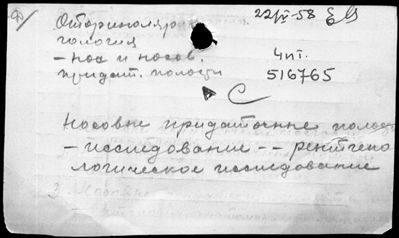 22/V-58
Оторинолярингология
– нос и носов. придат. полости
4 пт.
516765
С
Носовые придаточные полости
– исследование -- рентгено
логическое исследование